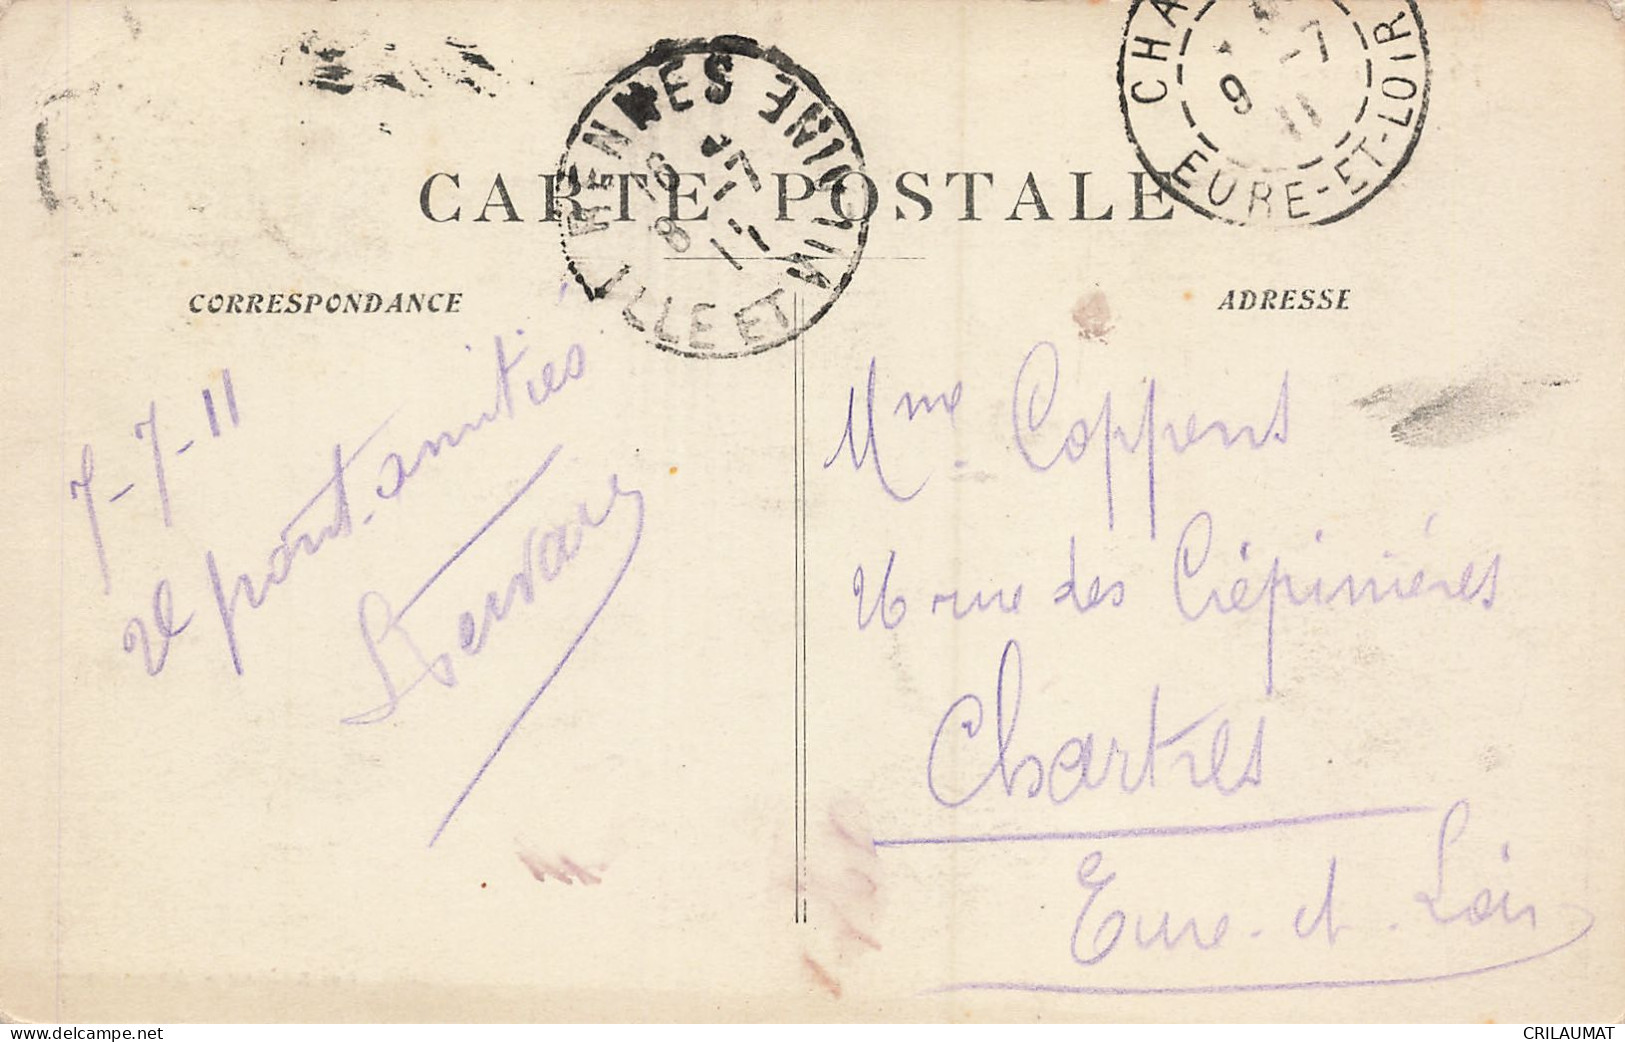 CARTE POSTALE
CORRESPONDANCE
ADRESSE
RENNES
ILLE ET VILAINE
16
8 -7
11
CHA
EURE-ET-LOIR
9 -7
11
7-7-11
amitiés
Mme Coppens
26 rue des Crépinières
Chartres
Eure-et-Loir
CRILAUMAT